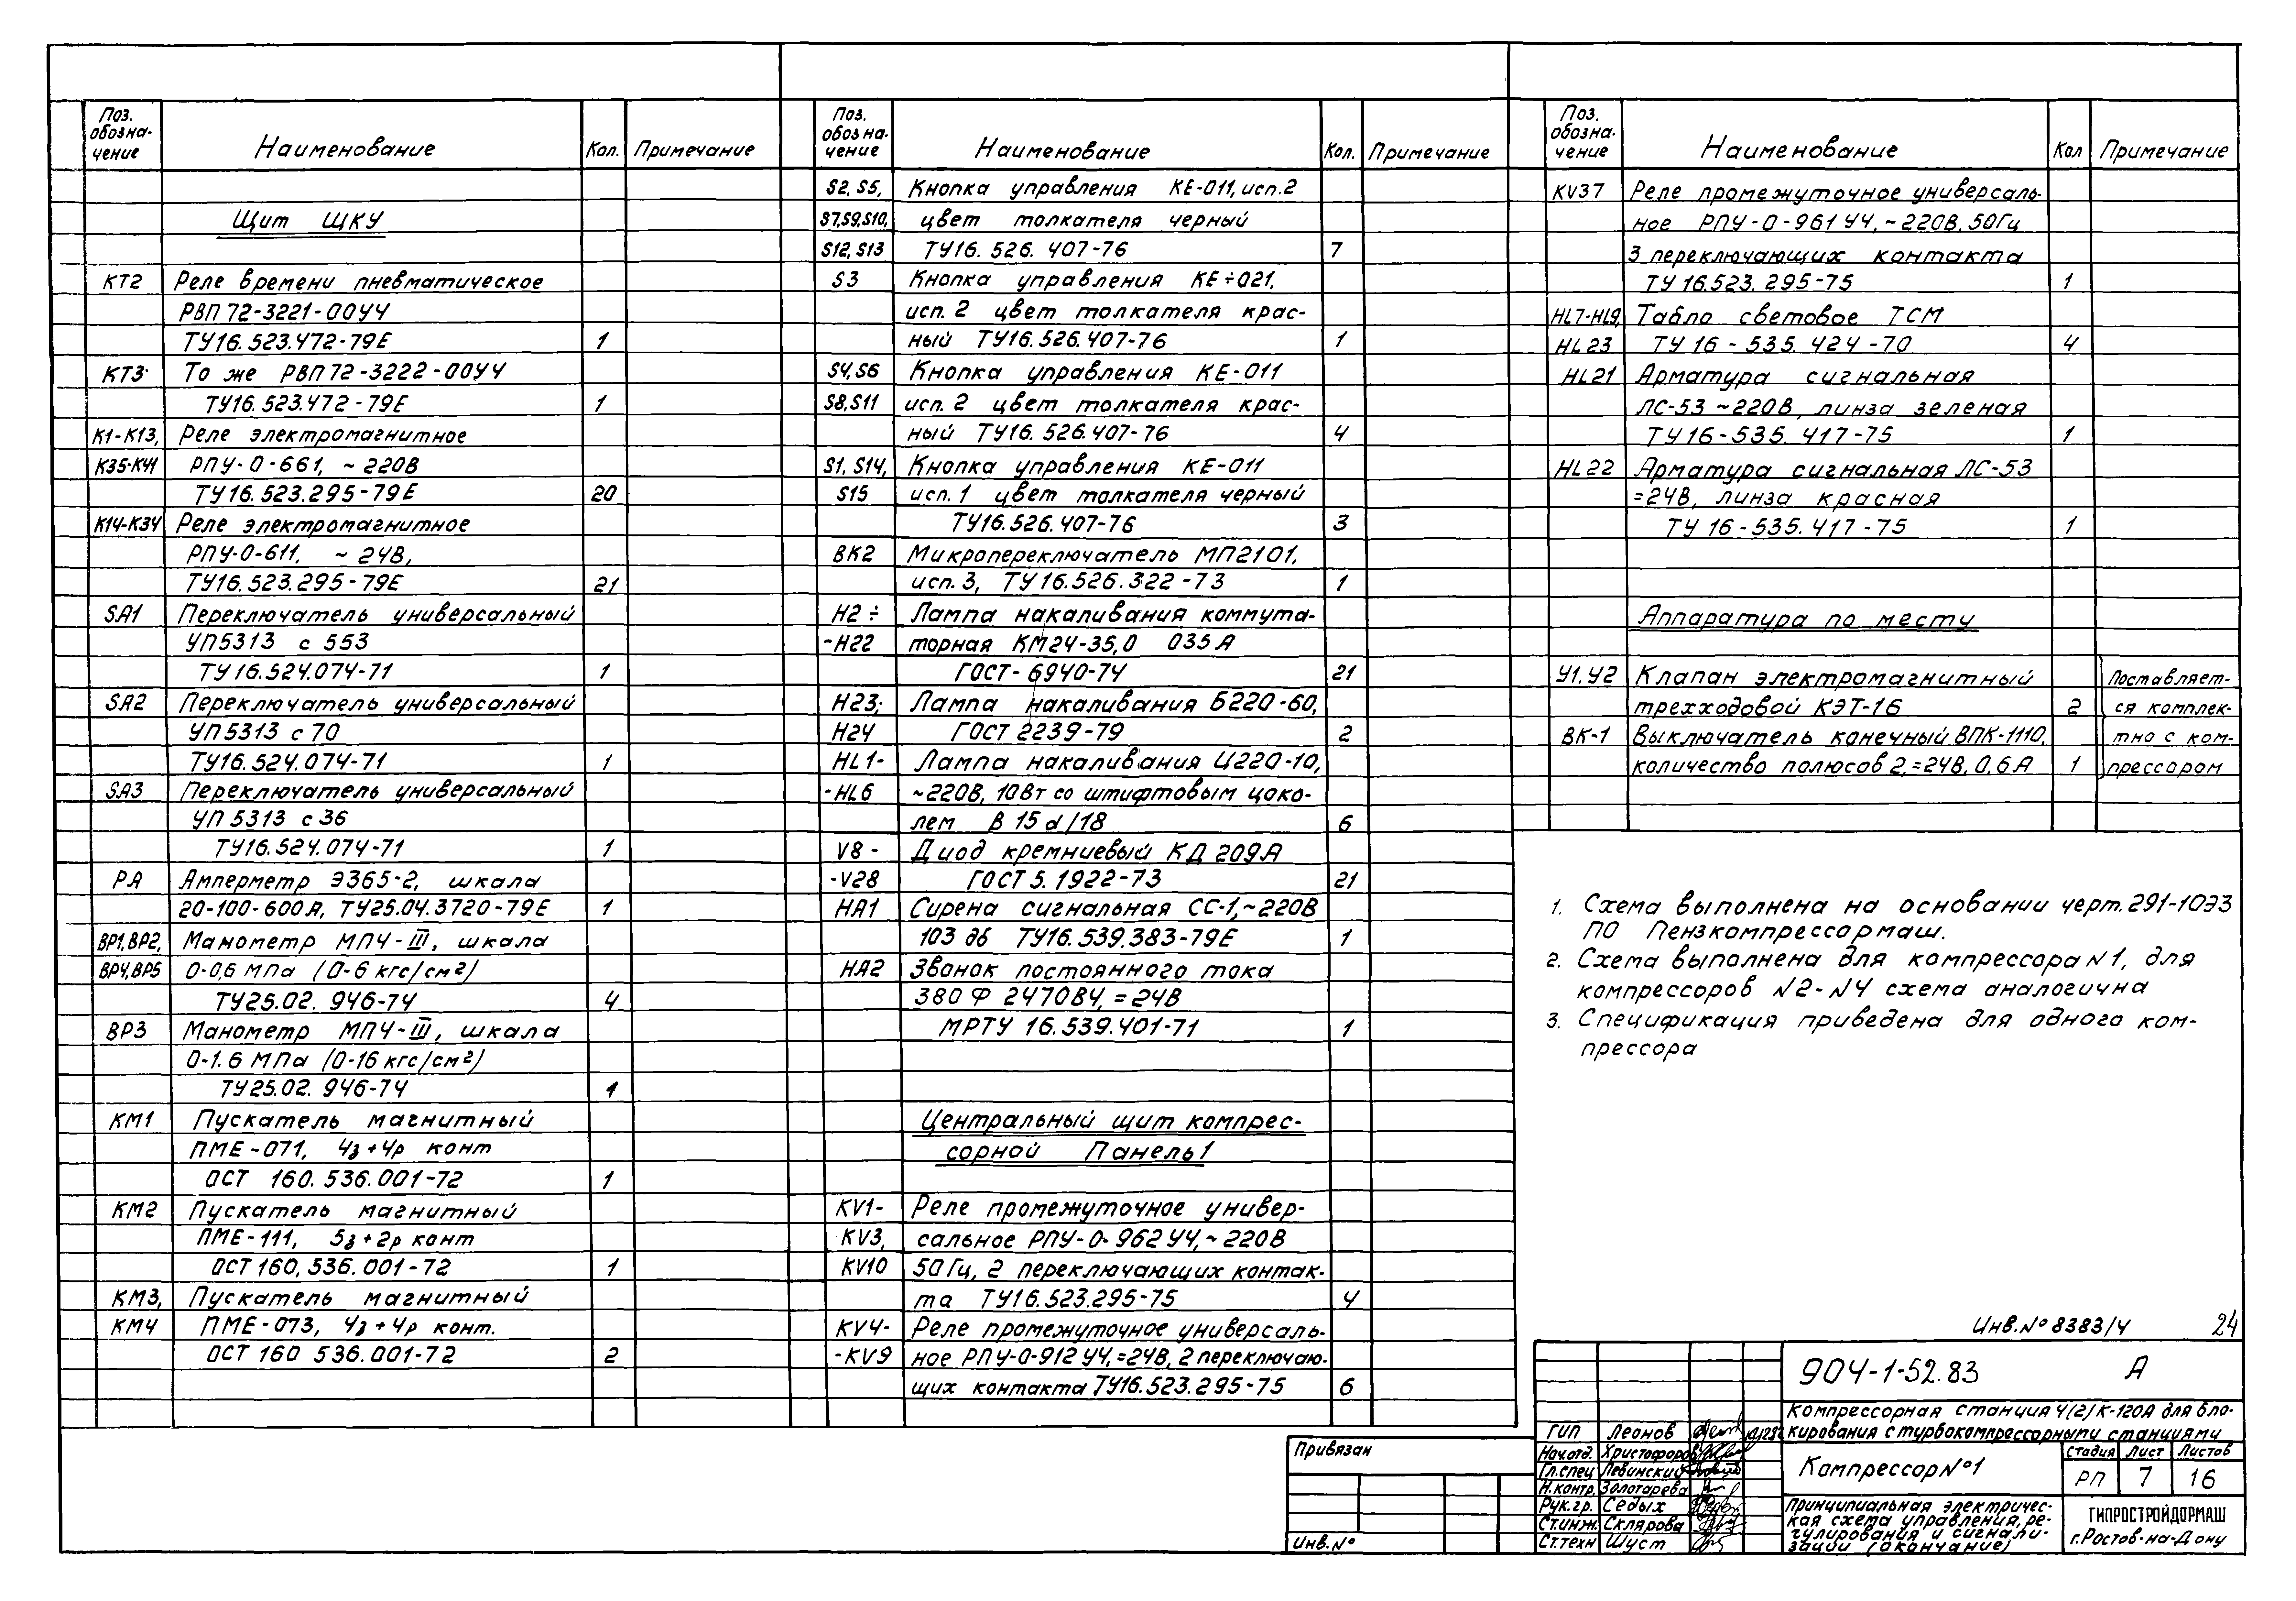 Поз. обозна-чение Наименование Кол. Примечание
Щит ЩКУ
КТ2 Реле времени пневматическое
РВП 72-3221-00У4
ТУ16.523.472-79Е 1
КТ3 То же РВП 72-3222-00У4
ТУ16.523.472-79Е 1
К1-К13, Реле электромагнитное
К35-К41 РПУ-0-661, ~220В
ТУ16.523.295-79Е 20
К14-К34 Реле электромагнитное
РПУ-0-611, ~24В,
ТУ16.523.295-79Е 21
SA1 Переключатель универсальный
УП5313 с 553
ТУ16.524.074-71 1
SA2 Переключатель универсальный
УП5313 с 70
ТУ16.524.074-71 1
SA3 Переключатель универсальный
УП 5313 с 36
ТУ16.524.074-71 1
РА Амперметр Э365-2, шкала
20-100-600А, ТУ25.04.3720-79Е 1
ВР1, ВР2, Манометр МП4-III, шкала
ВР4, ВР5 0-0,6 МПа (0-6 кгс/см²)
ТУ25.02. 946-74 4
ВР3 Манометр МП4-III, шкала
0-1.6 МПа (0-16 кгс/см²)
ТУ25.02. 946-74 1
КМ1 Пускатель магнитный
ПМЕ-071, 4з+4р конт
ОСТ 160.536.001-72 1
КМ2 Пускатель магнитный
ПМЕ-111, 5з+2р конт
ОСТ 160.536.001-72 1
КМ3, Пускатель магнитный
КМ4 ПМЕ-073, 4з+4р конт.
ОСТ 160 536.001-72 2
Поз. обозна-чение Наименование Кол. Примечание
S2, S5, Кнопка управления КЕ-011, исп.2
S7,S9,S10, цвет толкателя черный
S12, S13 ТУ16. 526. 407-76 7
S3 Кнопка управления КЕ÷021,
исп. 2 цвет толкателя крас-
ный ТУ16.526.407-76 1
S4, S6 Кнопка управления КЕ-011
S8, S11 исп. 2 цвет толкателя крас-
ный ТУ16. 526.407-76 4
S1, S14, Кнопка управления КЕ-011
S15 исп. 1 цвет толкателя черный
ТУ16.526.407-76 3
ВК2 Микропереключатель МП2101,
исп. 3, ТУ 16.526.322-73 1
Н2 ÷ Лампа накаливания коммута-
-Н22 торная КМ24-35,0 035А
ГОСТ- 6940-74 21
Н23; Лампа накаливания Б220-60,
Н24 ГОСТ 2239-79 2
HL1- Лампа накаливания Ц220-10,
-HL6 ~220В, 10Вт со штифтовым цоко-
лем В 15 d/18 6
V8 - Диод кремниевый КД 209А
-V28 ГОСТ 5. 1922-73 21
НА1 Сирена сигнальная СС-1, ~220В
103 дб ТУ16.539.383-79Е 1
НА2 Звонок постоянного тока
380 Ф 2470В4, =24В
МРТУ 16.539.401-71 1
Центральный щит компрес-
сорной Панель 1
KV1- Реле промежуточное универ-
KV3, сальное РПУ-0-962 У4, ~220В
KV10 50 Гц, 2 переключающих контак-
та ТУ16.523.295-75 4
KV4- Реле промежуточное универсаль-
-KV9 ное РПУ-0-912 У4, =24В, 2 переключаю-
щих контакта ТУ16.523.295-75 6
Поз. обозна-чение Наименование Кол Примечание
KV37 Реле промежуточное универсаль-
ное РПУ-0-961 У4, ~220В, 50Гц
3 переключающих контакта
ТУ 16.523. 295-75 1
HL7-HL9, Табло световое ТСМ
HL23 ТУ 16 - 535. 424 -70 4
HL21 Арматура сигнальная
ЛС-53 ~220В, линза зеленая
ТУ 16-535. 417-75 1
HL22 Арматура сигнальная ЛС-53
=24В, линза красная
ТУ 16-535.417-75 1
Аппаратура по месту
У1, У2 Клапан электромагнитный Поставляет-
трехходовой КЭТ-16 2 ся комплек-
ВК-1 Выключатель конечный ВПК-1110, тно с ком-
количество полюсов 2, =24В, 0,6А 1 прессором
1. Схема выполнена на основании черт. 291-10Э3
ПО Пензкомпрессормаш.
2. Схема выполнена для компрессора N1, для
компрессоров N2-N4 схема аналогична
3. Спецификация приведена для одного ком-
прессора
Инв. № 8383/4 24
904-1-52.83 А
Компрессорная станция 4(2) К-120А для бло-
кирования с турбокомпрессорными станциями
ГИП Леонов
Нач.отд. Христофоров
Гл.спец Левинский
Н.контр. Золотарева
Рук.гр. Седых
Ст.инж. Склярова
Ст.техн Шуст
Компрессор №1
Стадия Лист Листов
РП 7 16
Принципиальная электричес-
кая схема управления, ре-
гулирования и сигнали-
зации (окончание)
ГИПРОСТРОЙДОРМАШ
г. Ростов-на-Дону
Привязан
Инв. №